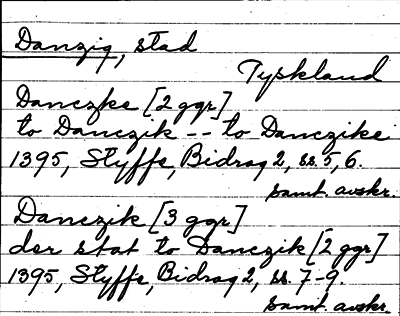 Danzig, stad
Tyskland
Danczke [2 ggr]
to Danczik -- to Danczike
1395, Styffe, Bidrag 2, ss. 5, 6.
samt. avskr.
Danczik [3 ggr]
der stat to Danczik [2 ggr]
1395, Styffe, Bidrag 2, ss. 7-9.
samt. avskr.